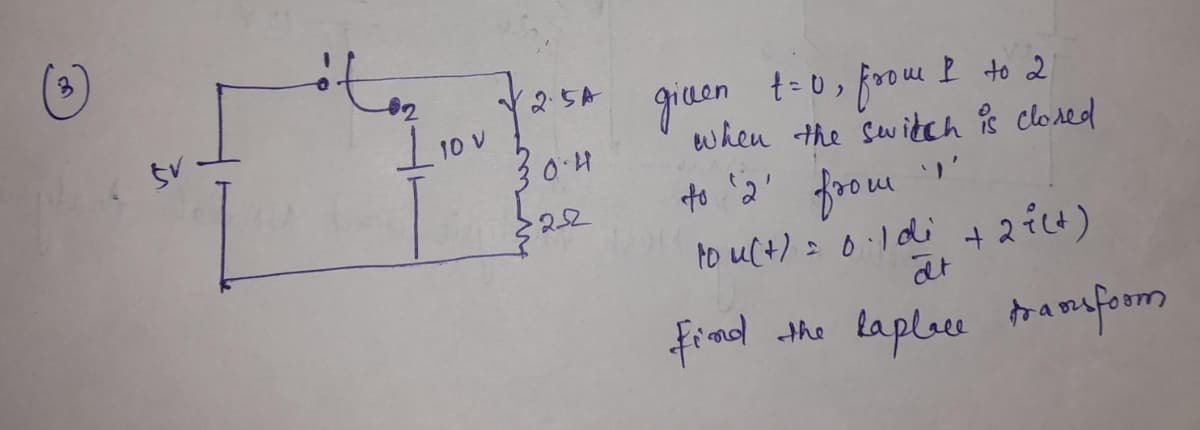 (3)
1
2
5V
10 V
2.5A
0.H
2Ω
given t=0, from 1 to 2
when the switch is closed
to '2' from '1'
10 u(t) = 0.1 di/dt + 2 i(t)
Find the laplace transform